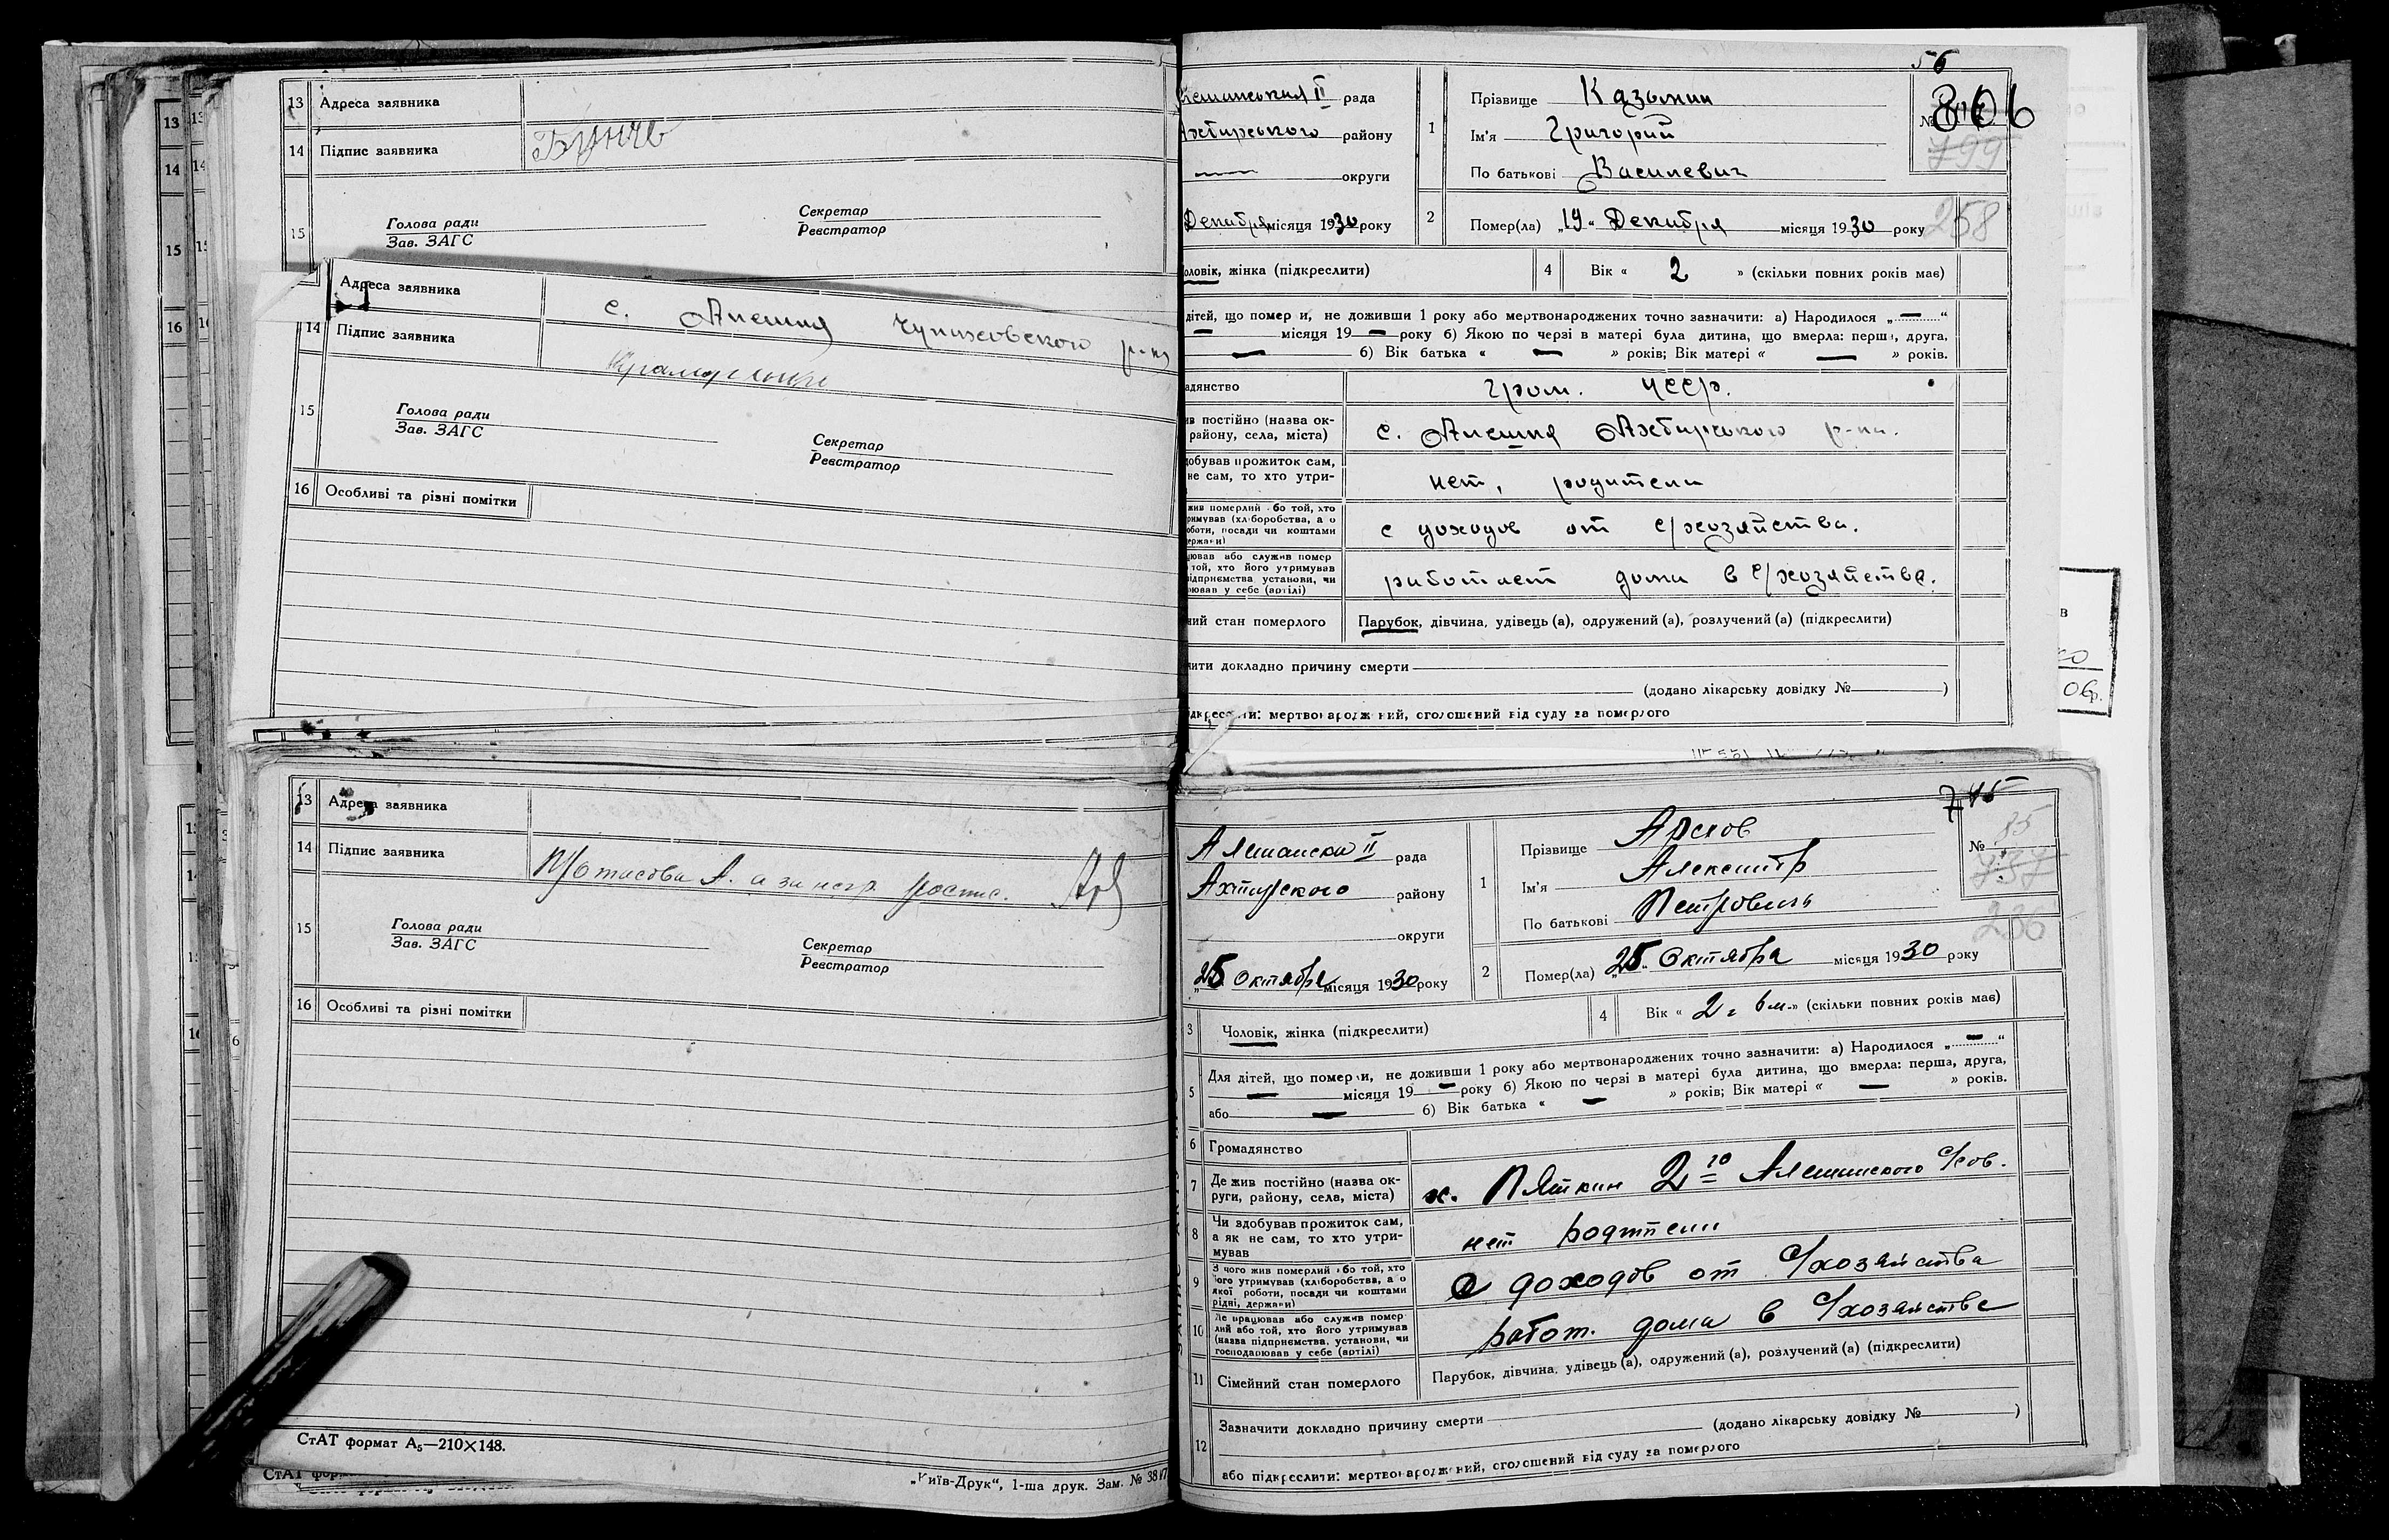 13 Адреса заявника
14 Підпис заявника
15 Голова ради
Зав. ЗАГС
Секретар
Реєстратор
Адреса заявника с. Алешня Чупаховского р-на
14 Підпис заявника
15 Голова ради
Зав. ЗАГС
Секретар
Реєстратор
16 Особливі та різні помітки
56
рада
Ахтирського району
округи
Декабря місяця 1930 року
1 Прізвище Казьмин
Ім'я Григорий
По батькові Василевич
№ 806
799
2 Помер(ла) „19“ Декабря місяця 1930 року
258
чоловік, жінка (підкреслити)
4 Вік « 2 » (скільки повних років має)
дітей, що померли, не доживши 1 року або мертвонароджених точно зазначити: а) Народилося „ — “
— місяця 19 — року б) Якою по черзі в матері була дитина, що вмерла: перша, друга,
— б) Вік батька « — » років; Вік матері « — » років.
адянство гром. УССР.
ив постійно (назва ок-
району, села, міста) с. Алешня Ахтирського р-на.
добував прожиток сам,
не сам, то хто утри- нет, родители
жив померлий або той, хто
римував (хліборобства, а о
оботи, посади чи коштами
ержави) с доходов от с/хозяйства.
ював або служив помер
той, хто його утримував
ідприємства установи, чи
рював у себе (артілі) работает дома в с/хозяйстве.
ний стан померлого Парубок, дівчина, удівець (а), одружений (а), розлучений (а) (підкреслити)
чити докладно причину смерти
(додано лікарську довідку № )
ідкреслити: мертвонароджений, оголошений від суду за померлого
13 Адреса заявника
14 Підпис заявника Протасова А. а за негр. роспис.
15 Голова ради
Зав. ЗАГС
Секретар
Реєстратор
16 Особливі та різні помітки
СтАТ формат А₅—210×148.
„Київ-Друк“, 1-ша друк. Зам. № 38
745
Алешанска II рада
Ахтирского району
округи
„25 Октября місяця 1930 року
1 Прізвище
Ім'я Александр
По батькові Петрович
№ 85
737
2 Помер(ла) „25“ Октября місяця 1930 року
236
3 Чоловік, жінка (підкреслити)
4 Вік « 2 г 6 м. » (скільки повних років має)
5 Для дітей, що померли, не доживши 1 року або мертвонароджених точно зазначити: а) Народилося „ — “
— місяця 19 — року б) Якою по черзі в матері була дитина, що вмерла: перша, друга,
або — б) Вік батька « — » років; Вік матері « — » років.
6 Громадянство
7 Де жив постійно (назва ок-
руги, району, села, міста) х. Пяткин 2го Алешанского с/сов.
8 Чи здобував прожиток сам,
а як не сам, то хто утри-
мував нет родители
9 З чого жив померлий або той, хто
його утримував (хліборобства, а о
якої роботи, посади чи коштами
рідні, держави) С доходов от с/хозяйства
10 Де працював або служив помер
лий або той, хто його утримував
(назва підприємства, установи, чи
господарював у себе (артілі) работ. дома в с/хозяйстве
11 Сімейний стан померлого Парубок, дівчина, удівець (а), одружений (а), розлучений (а) (підкреслити)
12 Зазначити докладно причину смерти
(додано лікарську довідку № )
або підкреслити: мертвонароджений, оголошений від суду за померлого